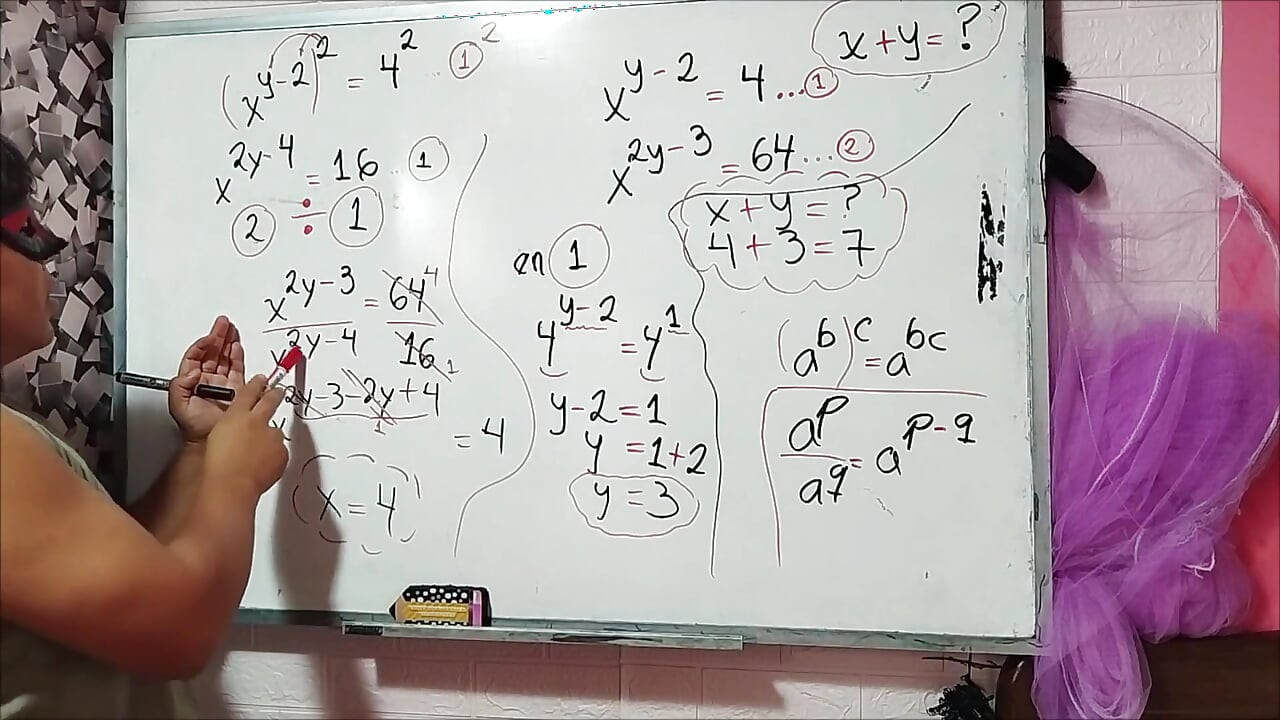 (x^{y-2})^2 = 4^2 ①^2
x^{2y-4} = 16 ①
② ÷ ①
x^{2y-3} / x^{2y-4} = 64 4 / 16 1
x^{2y-3-2y+4} = 4
x = 4
en ①
4^{y-2} = 4^1
y-2 = 1
y = 1+2
y = 3
x+y = ?
x^{y-2} = 4 ... ①
x^{2y-3} = 64 ... ②
x+y = ?
4+3 = 7
(a^b)^c = a^{bc}
a^p / a^q = a^{p-q}